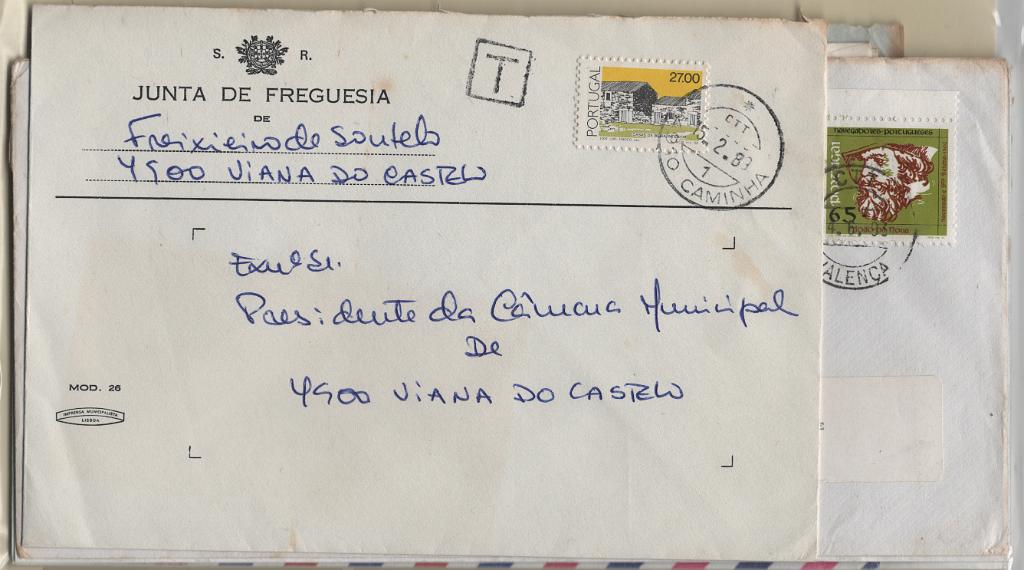 S. R.
JUNTA DE FREGUESIA
DE
Freixieiro de Soutelo
4900 VIANA DO CASTELO
T
PORTUGAL
27.00
CTT
2.8
1
CAMINHA
Exmº Sr.
Presidente da Câmara Municipal
De
4900 VIANA DO CASTELO
MOD. 26
IMPRENSA MUNICIPALISTA
LISBOA
navegadores portugueses
portugal
65
VALENÇA